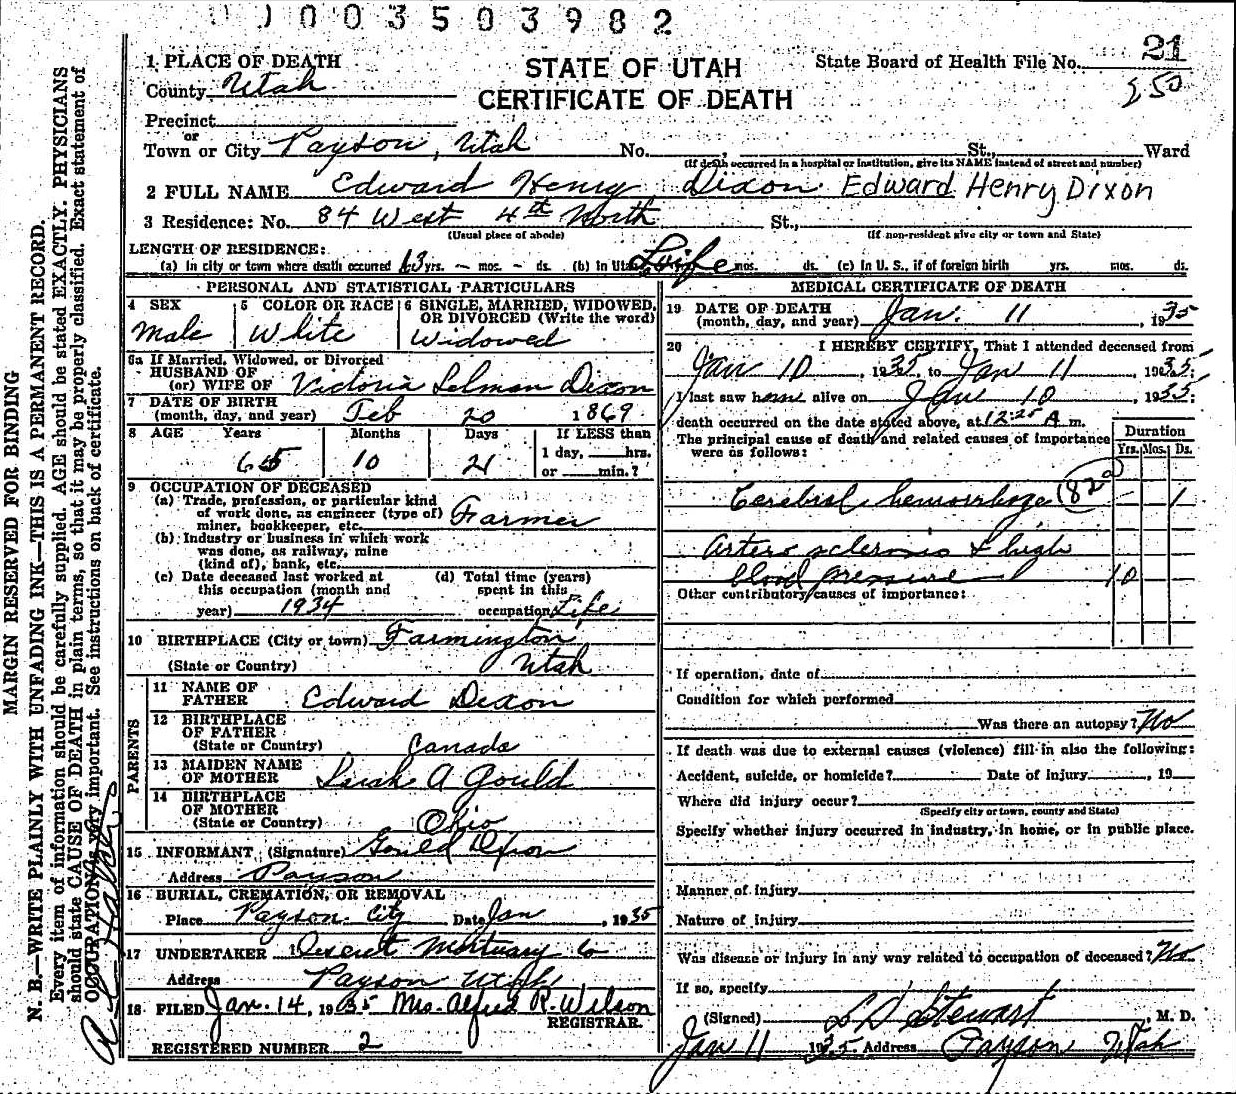 0003503982
21
250
1 PLACE OF DEATH
County Utah
STATE OF UTAH
CERTIFICATE OF DEATH
State Board of Health File No.
Precinct
or
Town or City Payson, Utah No. , St., Ward
(If death occurred in a hospital or institution, give its NAME instead of street and number)
2 FULL NAME Edward Henry Dixon Edward Henry Dixon
3 Residence: No. 84 West 4th North St.,
(Usual place of abode) (If non-resident give city or town and State)
LENGTH OF RESIDENCE:
(a) In city or town where death occurred 63 yrs. – mos. – ds. (b) In Utah Life mos. ds. (c) In U. S., if of foreign birth yrs. mos. ds.
PERSONAL AND STATISTICAL PARTICULARS
4 SEX
Male
5 COLOR OR RACE
White
6 SINGLE, MARRIED, WIDOWED, OR DIVORCED (Write the word)
Widowed
6a If Married, Widowed, or Divorced
HUSBAND OF
(or) WIFE OF Victoria Selman Dixon
7 DATE OF BIRTH
(month, day, and year) Feb 20 1869
8 AGE Years Months Days If LESS than
1 day, hrs.
65 10 21 or min.?
9 OCCUPATION OF DECEASED
(a) Trade, profession, or particular kind
of work done, as engineer (type of)
miner, bookkeeper, etc. Farmer
(b) Industry or business in which work
was done, as railway, mine
(kind of), bank, etc.
(c) Date deceased last worked at
this occupation (month and
year) 1934
(d) Total time (years)
spent in this
occupation Life
10 BIRTHPLACE (City or town) Farmington
(State or Country) Utah
PARENTS
11 NAME OF
FATHER Edward Dixon
12 BIRTHPLACE
OF FATHER
(State or Country) Canada
13 MAIDEN NAME
OF MOTHER Sarah A Gould
14 BIRTHPLACE
OF MOTHER
(State or Country) Ohio
15 INFORMANT (Signature) Gould Dixon
Address Payson
16 BURIAL, CREMATION, OR REMOVAL
Place Payson City Date Jan , 1935
17 UNDERTAKER Deseret Mortuary Co
Address Payson Utah
18 FILED Jan. 14, 1935 Mrs. Alfred R. Wilson
REGISTRAR.
REGISTERED NUMBER 2
MEDICAL CERTIFICATE OF DEATH
19 DATE OF DEATH
(month, day, and year) Jan. 11 , 1935
20 I HEREBY CERTIFY, That I attended deceased from
Jan 10 , 1935, to Jan 11 , 1935;
I last saw him alive on Jan 10 , 1935;
death occurred on the date stated above, at 12:25 A m.
The principal cause of death and related causes of importance
were as follows:
Duration
Yrs. Mos. Ds.
Cerebral hemorrhage 82a – 1
Arterio sclerosis & high
blood pressure 10
Other contributory causes of importance:
If operation, date of
Condition for which performed
Was there an autopsy? No
If death was due to external causes (violence) fill in also the following:
Accident, suicide, or homicide? Date of injury , 19
Where did injury occur?
(Specify city or town, county and State)
Specify whether injury occurred in industry, in home, or in public place.
Manner of injury
Nature of injury
Was disease or injury in any way related to occupation of deceased? No
If so, specify
(Signed) L D Stewart , M. D.
Jan 11 1935 Address Payson Utah
MARGIN RESERVED FOR BINDING
N. B.—WRITE PLAINLY WITH UNFADING INK—THIS IS A PERMANENT RECORD.
Every item of information should be carefully supplied. AGE should be stated EXACTLY. PHYSICIANS
should state CAUSE OF DEATH in plain terms, so that it may be properly classified. Exact statement of
OCCUPATION is very important. See instructions on back of certificate.